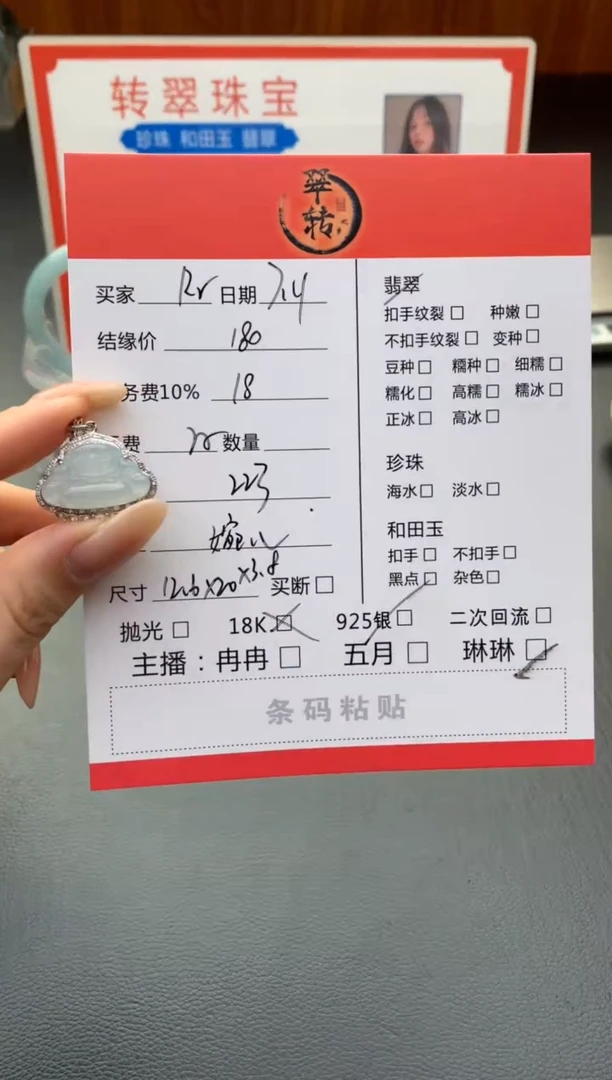 转翠珠宝
珍珠 和田玉 翡翠
翠
转
买家 Rr 日期 7.4
结缘价 180
务费10% 18
费 数量
223
尺寸 12.6×20×3.8 买断
翡翠
扣手纹裂 种嫩
不扣手纹裂 变种
豆种 糯种 细糯
糯化 高糯 糯冰
正冰 高冰
珍珠
海水 淡水
和田玉
扣手 不扣手
黑点 杂色
抛光 18K. 925银 二次回流
主播：冉冉 五月 琳琳
条码粘贴